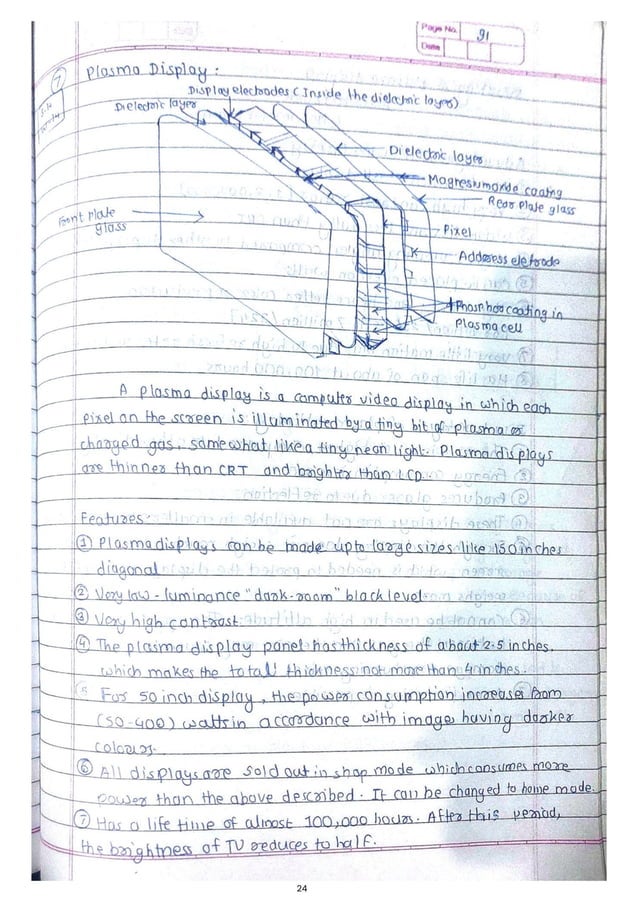 Page No. 91
Date
7
Plasma Display :
Display electrodes (Inside the dielectric layer)
Dielectric layer
Dielectric layer
Magnesium oxide coating
Rear plate glass
Front plate
glass
Pixel
Address eletrode
Phosphor coating in
plasma cell
A plasma display is a computer video display in which each
pixel on the screen is illuminated by a tiny bit of plasma or
charged gas, somewhat like a tiny neon light. Plasma displays
are thinner than CRT and brighter than LCD.
Features
① Plasma displays can be made upto large sizes like 150 inches
diagonal
② Very low-luminance "dark-room" black level
③ Very high contrast
④ The plasma display panel has thickness of about 2.5 inches.
which makes the total thickness not more than 4 inches.
5 For 50 inch display, the power consumption increases from
(50-400) watts in accordance with images having darker
colours.
⑥ All displays are sold out in shop mode which consumes more
power than the above described. It can be changed to home mode.
⑦ Has a life time of almost 100,000 hours. After this period,
the brightness of TV reduces to half.
24